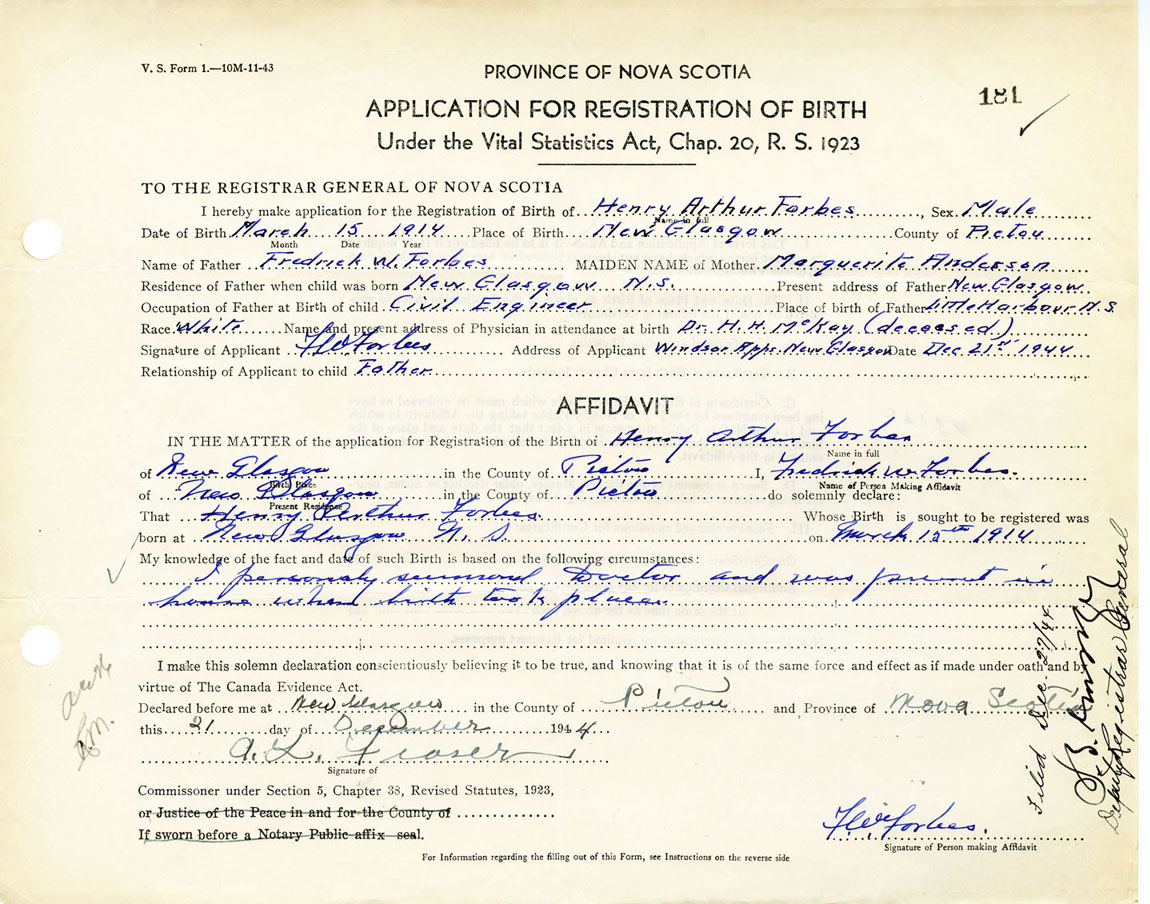 V. S. Form 1.—10M-11-43
PROVINCE OF NOVA SCOTIA
181
APPLICATION FOR REGISTRATION OF BIRTH
Under the Vital Statistics Act, Chap. 20, R. S. 1923
TO THE REGISTRAR GENERAL OF NOVA SCOTIA
I hereby make application for the Registration of Birth of Henry Arthur Forbes, Sex Male
Name in full
Date of Birth March 15 1914 Place of Birth New Glasgow County of Pictou
Month Date Year
Name of Father Fredrick W. Forbes MAIDEN NAME of Mother Marguerite Anderson
Residence of Father when child was born New Glasgow N.S. Present address of Father New Glasgow
Occupation of Father at Birth of child Civil Engineer Place of birth of Father Little Harbour N.S.
Race White Name and present address of Physician in attendance at birth Dr. H. H. McKay (deceased)
Signature of Applicant F W Forbes Address of Applicant Windsor Apps. New Glasgow Date Dec 21st 1944
Relationship of Applicant to child Father
AFFIDAVIT
IN THE MATTER of the application for Registration of the Birth of Henry Arthur Forbes
Name in full
of New Glasgow in the County of Pictou I, Fredrick W. Forbes.
Birth Place Name of Person Making Affidavit
of New Glasgow in the County of Pictou do solemnly declare:
Present Residence
That Henry Arthur Forbes Whose Birth is sought to be registered was
born at New Glasgow N. S. on March 15th 1914
My knowledge of the fact and date of such Birth is based on the following circumstances:
I personaly summond Doctor and was present in
house when birth took place.
I make this solemn declaration conscientiously believing it to be true, and knowing that it is of the same force and effect as if made under oath and by
virtue of The Canada Evidence Act.
Declared before me at New Glasgow in the County of Pictou and Province of Nova Scotia
this 21 day of December 1944
A. L. Fraser
Signature of
Commissoner under Section 5, Chapter 38, Revised Statutes, 1923,
or Justice of the Peace in and for the County of
If sworn before a Notary Public affix seal.
F W Forbes.
Signature of Person making Affidavit
For Information regarding the filling out of this Form, see Instructions on the reverse side
Filed Dec. 27/44
Deputy Registrar General